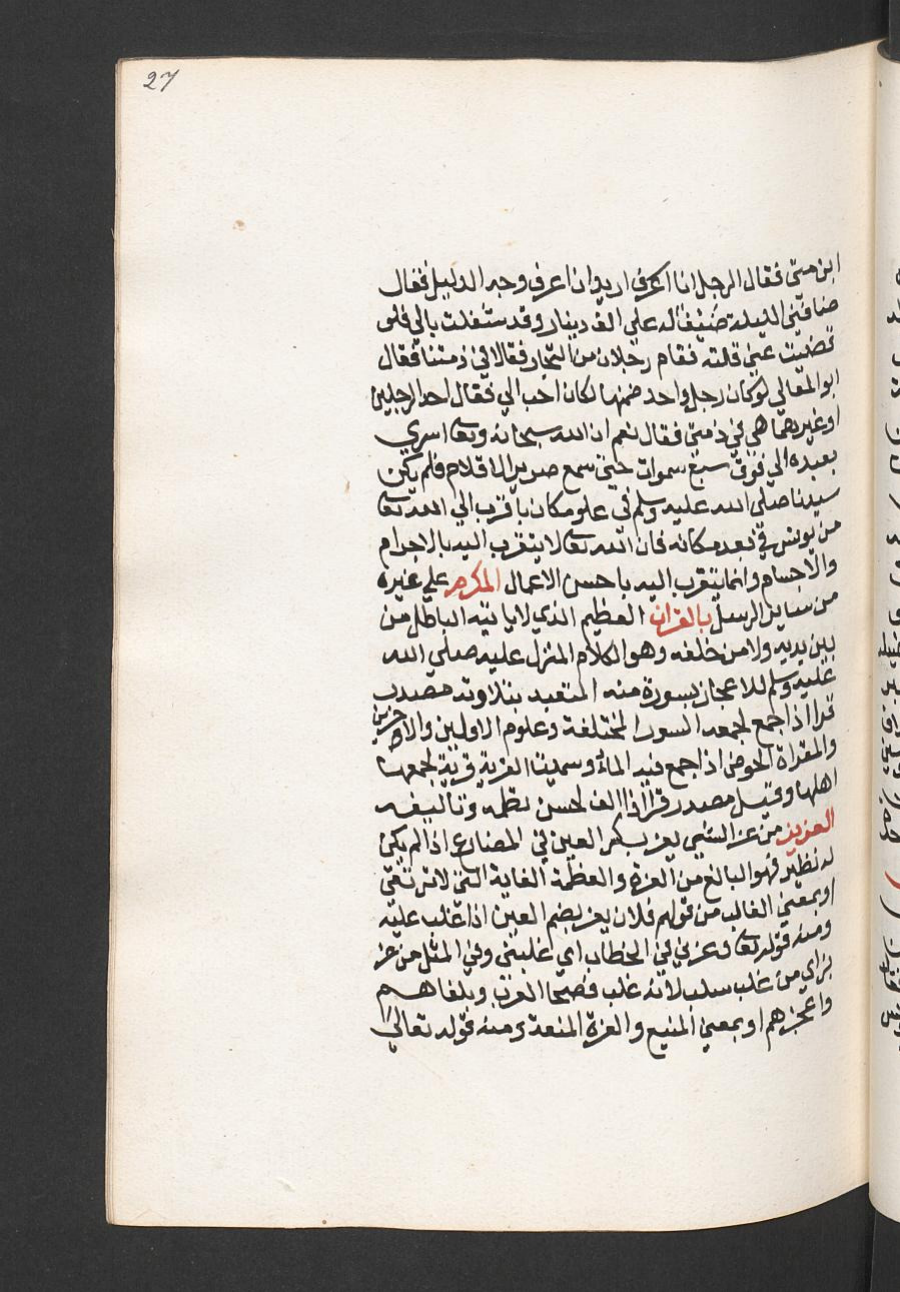 27
ابن متى فقال الرجل انا اعرف اريد ان اعرف وجه الدليل فقال
ضافني الليلة ضيف له علي الف دينار وقد شغلت بالي فلو
قضيت عني قلته فقام رجلان من التجار فقالا في ذمتنا فقال
ابو المعالي لو كان رجل واحد ضمنها لكان احب الي فقال احد الرجلين
او غيرهما هي في ذمتي فقال نعم ان الله سبحانه وتعا اسري
بعبده الي فوق سبع سموات حتي سمع صرير الاقلام فلم يكن
سيدنا صلي الله عليه وسلم في علو مكان باقرب الي الله تعا
من يونس في بعد مكانه فان الله تعا لا يتقرب اليه بالاجرام
والاجسام وانما يتقرب اليه باحسن الاعمال المكرم علي غيره
من ساير الرسل بالقران العظيم الذي لا ياتيه الباطل من
بين يديه ولا من خلفه وهو الكلام المنزل عليه صلي الله
عليه وسلم للاعجاز بسورة منه المتعبد بتلاوته مصدر
قرا اذا جمع لجمعه السور المختلفة وعلوم الاولين والاخرين
والمقراة الحوض اذا جمع فيه الماء وسميت القرية قرية لجمعها
اهلها وقيل مصدر قرا اذا الف لحسن نظمه وتاليفه
العزيز من عز الشي يعز بكسر العين في المضارع اذا لم يكن
له نظير فهو البالغ من العزة والعظمة الغاية التي لا ترتقي
او بمعني الغالب من قولهم فلان يعز بضم العين اذا غلب عليه
ومنه قوله تعا وعزني في الخطاب اي غلبني وفي المثل من عز
بز اي من غلب سلب لانه غلب فصحا العرب وبلغاهم
واعجزهم او بمعني المنيع والعزة المنعة ومنه قوله تعالي